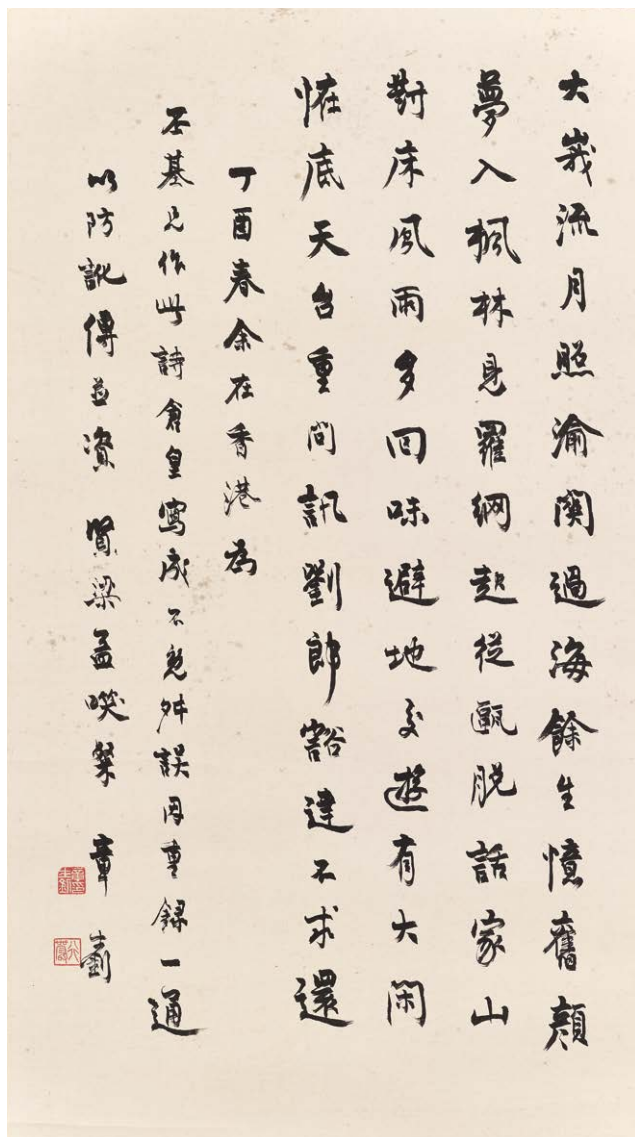 大峩流月照渝関過海餘生憶舊顔
夢入楓林見羅綱起從甌脱話家山
對床風雨多回味避地交遊有大閑
恠底天台重問訊劉郎豁達不求還
丁酉春余在香港為
丕基兄作此詩倉皇寫成不免舛誤因重録一通
以防訛傳並資 賢梁孟噗粲 章 釗